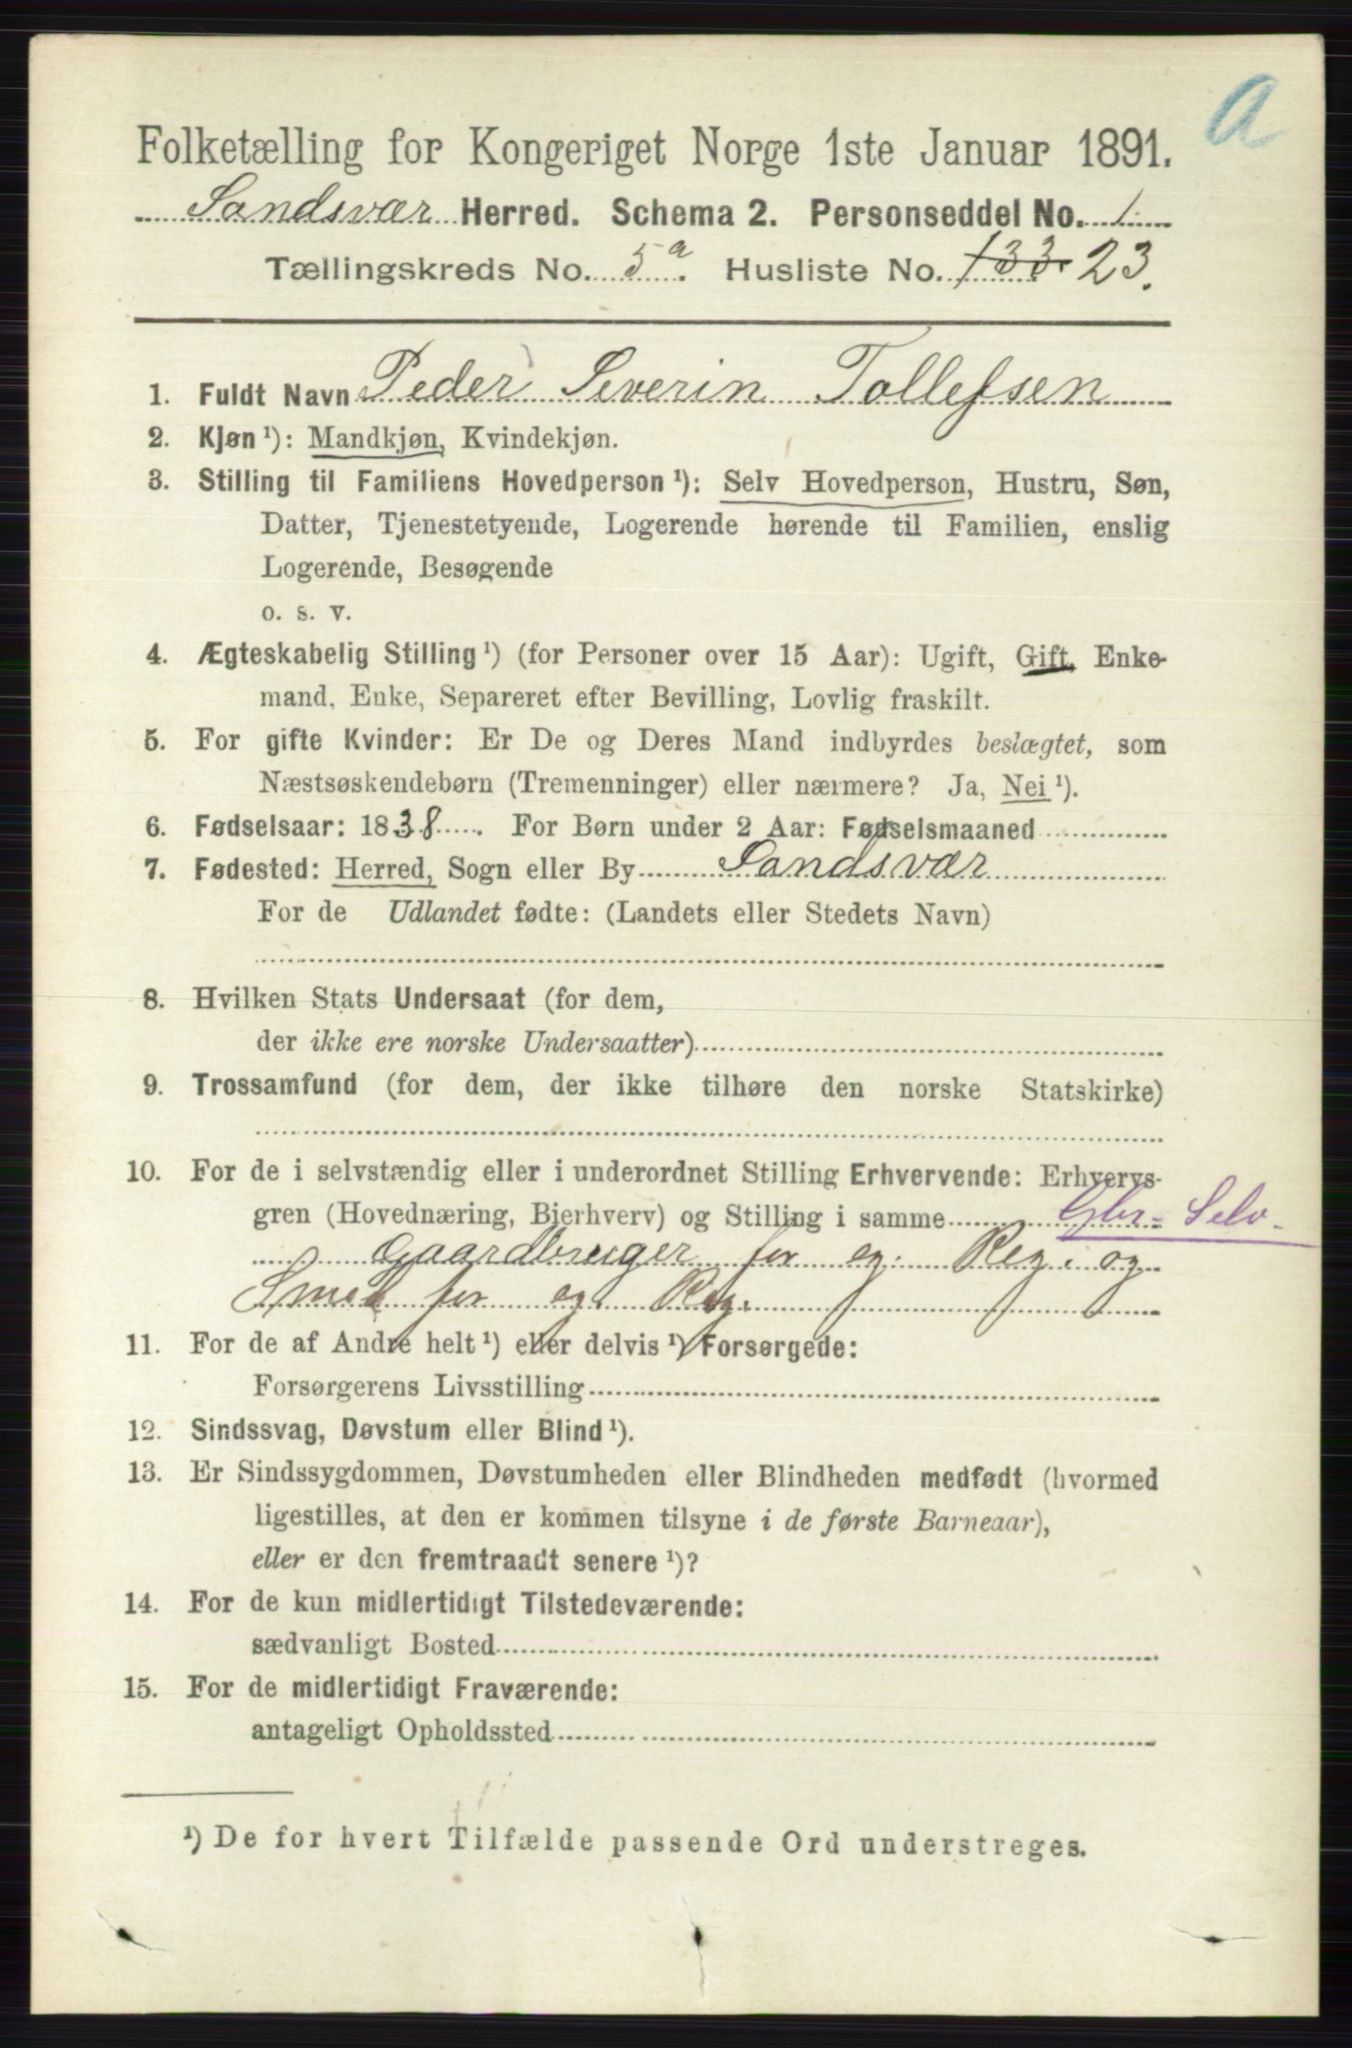 a
Folketælling for Kongeriget Norge 1ste Januar 1891.
Sandsvær Herred. Schema 2. Personseddel No. 1
Tællingskreds No. 5a. Husliste No. 133. 23.
1. Fuldt Navn Peder Severin Tollefsen
2. Kjøn¹): Mandkjøn, Kvindekjøn.
3. Stilling til Familiens Hovedperson¹): Selv Hovedperson, Hustru, Søn,
Datter, Tjenestetyende, Logerende hørende til Familien, enslig
Logerende, Besøgende
o. s. v.
4. Ægteskabelig Stilling¹) (for Personer over 15 Aar): Ugift, Gift, Enke-
mand, Enke, Separeret efter Bevilling, Lovlig fraskilt.
5. For gifte Kvinder: Er De og Deres Mand indbyrdes beslægtet, som
Næstsøskendebørn (Tremenninger) eller nærmere? Ja, Nei¹).
6. Fødselsaar: 1838. For Børn under 2 Aar: Fødselsmaaned
7. Fødested: Herred, Sogn eller By Sandsvær
For de Udlandet fødte: (Landets eller Stedets Navn)
8. Hvilken Stats Undersaat (for dem,
der ikke ere norske Undersaatter)
9. Trossamfund (for dem, der ikke tilhøre den norske Statskirke)
10. For de i selvstændig eller i underordnet Stilling Erhvervende: Erhvervs-
gren (Hovednæring, Bierhverv) og Stilling i samme Gbr- Selv-
Gaardbruger for eg. Reg. og
Smed for eg. Reg.
11. For de af Andre helt¹) eller delvis¹) Forsørgede:
Forsørgerens Livsstilling
12. Sindssvag, Døvstum eller Blind¹).
13. Er Sindssygdommen, Døvstumheden eller Blindheden medfødt (hvormed
ligestilles, at den er kommen tilsyne i de første Barneaar),
eller er den fremtraadt senere¹)?
14. For de kun midlertidigt Tilstedeværende:
sædvanligt Bosted
15. For de midlertidigt Fraværende:
antageligt Opholdssted
¹) De for hvert Tilfælde passende Ord understreges.